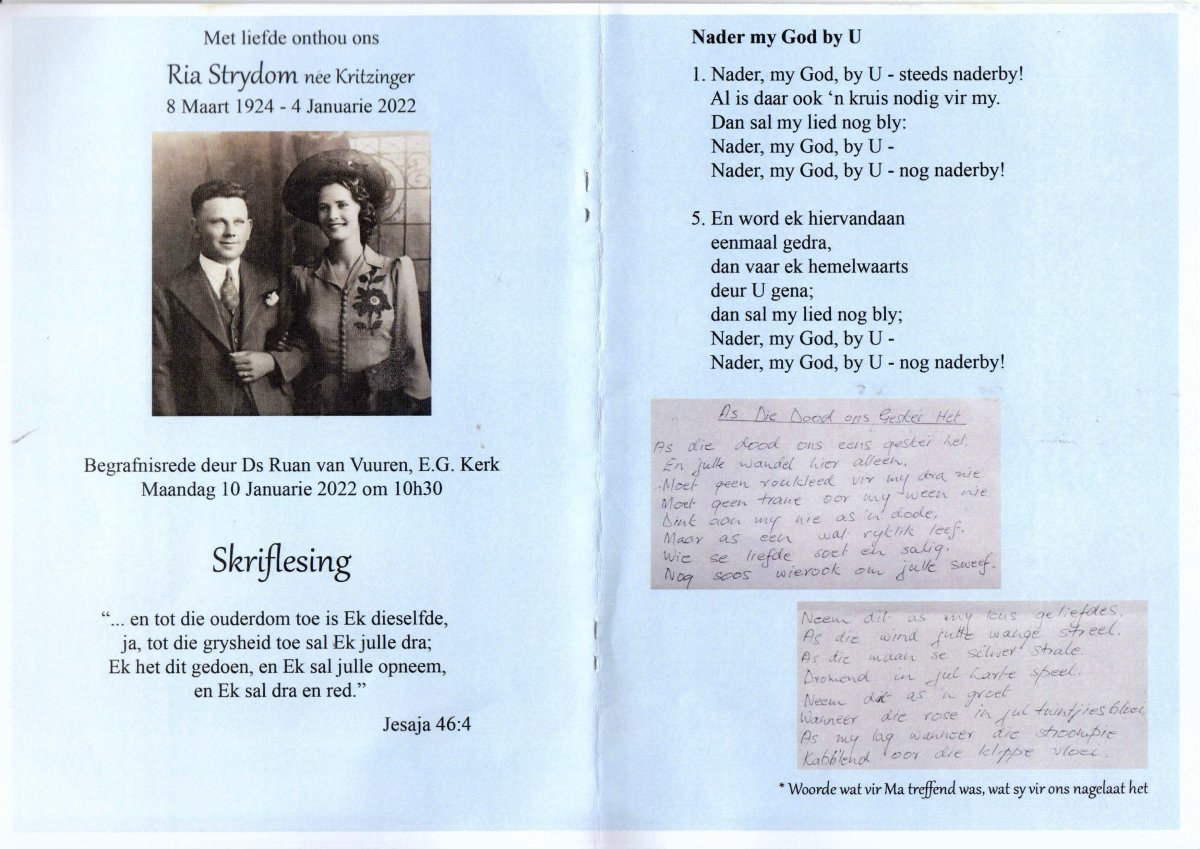 Met liefde onthou ons
Ria Strydom née Kritzinger
8 Maart 1924 - 4 Januarie 2022
Begrafnisrede deur Ds Ruan van Vuuren, E.G. Kerk
Maandag 10 Januarie 2022 om 10h30
Skriflesing
“... en tot die ouderdom toe is Ek dieselfde,
ja, tot die grysheid toe sal Ek julle dra;
Ek het dit gedoen, en Ek sal julle opneem,
en Ek sal dra en red.”
Jesaja 46:4
Nader my God by U
1. Nader, my God, by U - steeds naderby!
Al is daar ook ‘n kruis nodig vir my.
Dan sal my lied nog bly:
Nader, my God, by U -
Nader, my God, by U - nog naderby!
5. En word ek hiervandaan
eenmaal gedra,
dan vaar ek hemelwaarts
deur U gena;
dan sal my lied nog bly;
Nader, my God, by U -
Nader, my God, by U - nog naderby!
As Die Dood ons Geskei Het
As die dood ons eens geskei het,
En julle wandel hier alleen,
Moet geen roukleed vir my dra nie
Moet geen trane oor my ween nie.
Dink aan my nie as 'n dode,
Maar as een wat ryklik leef.
Wie se liefde soet en salig.
Nog soos wierook om julle sweef.
Neem dit as my kus geliefdes,
As die wind julle wange streel.
As die maan se silwer strale.
Dromend in jul harte speel.
Neem dit as 'n groet
Wanneer die rose in jul tuintjies bloei,
As my lag wanneer die stroompie
Kabb'lend oor die klippe vloei.
* Woorde wat vir Ma treffend was, wat sy vir ons nagelaat het